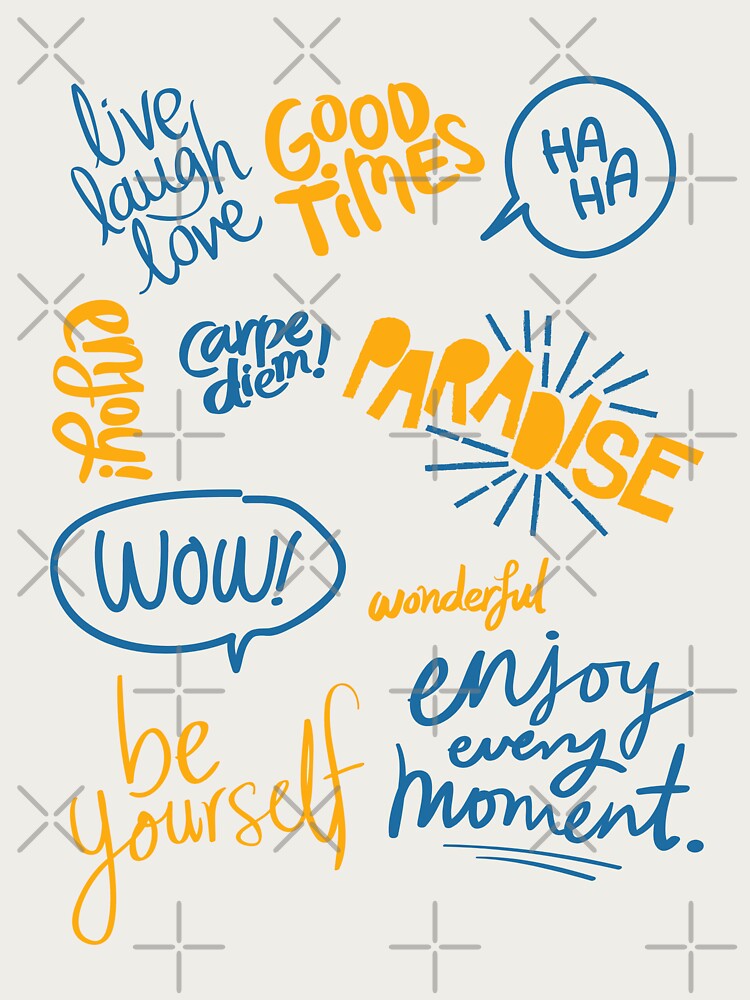 live
laugh
love
GOOD
TiMES
HA
HA
enjoy!
carpe
diem!
PARADISE
WOW!
wonderful
be
yourself
enjoy
every
moment.